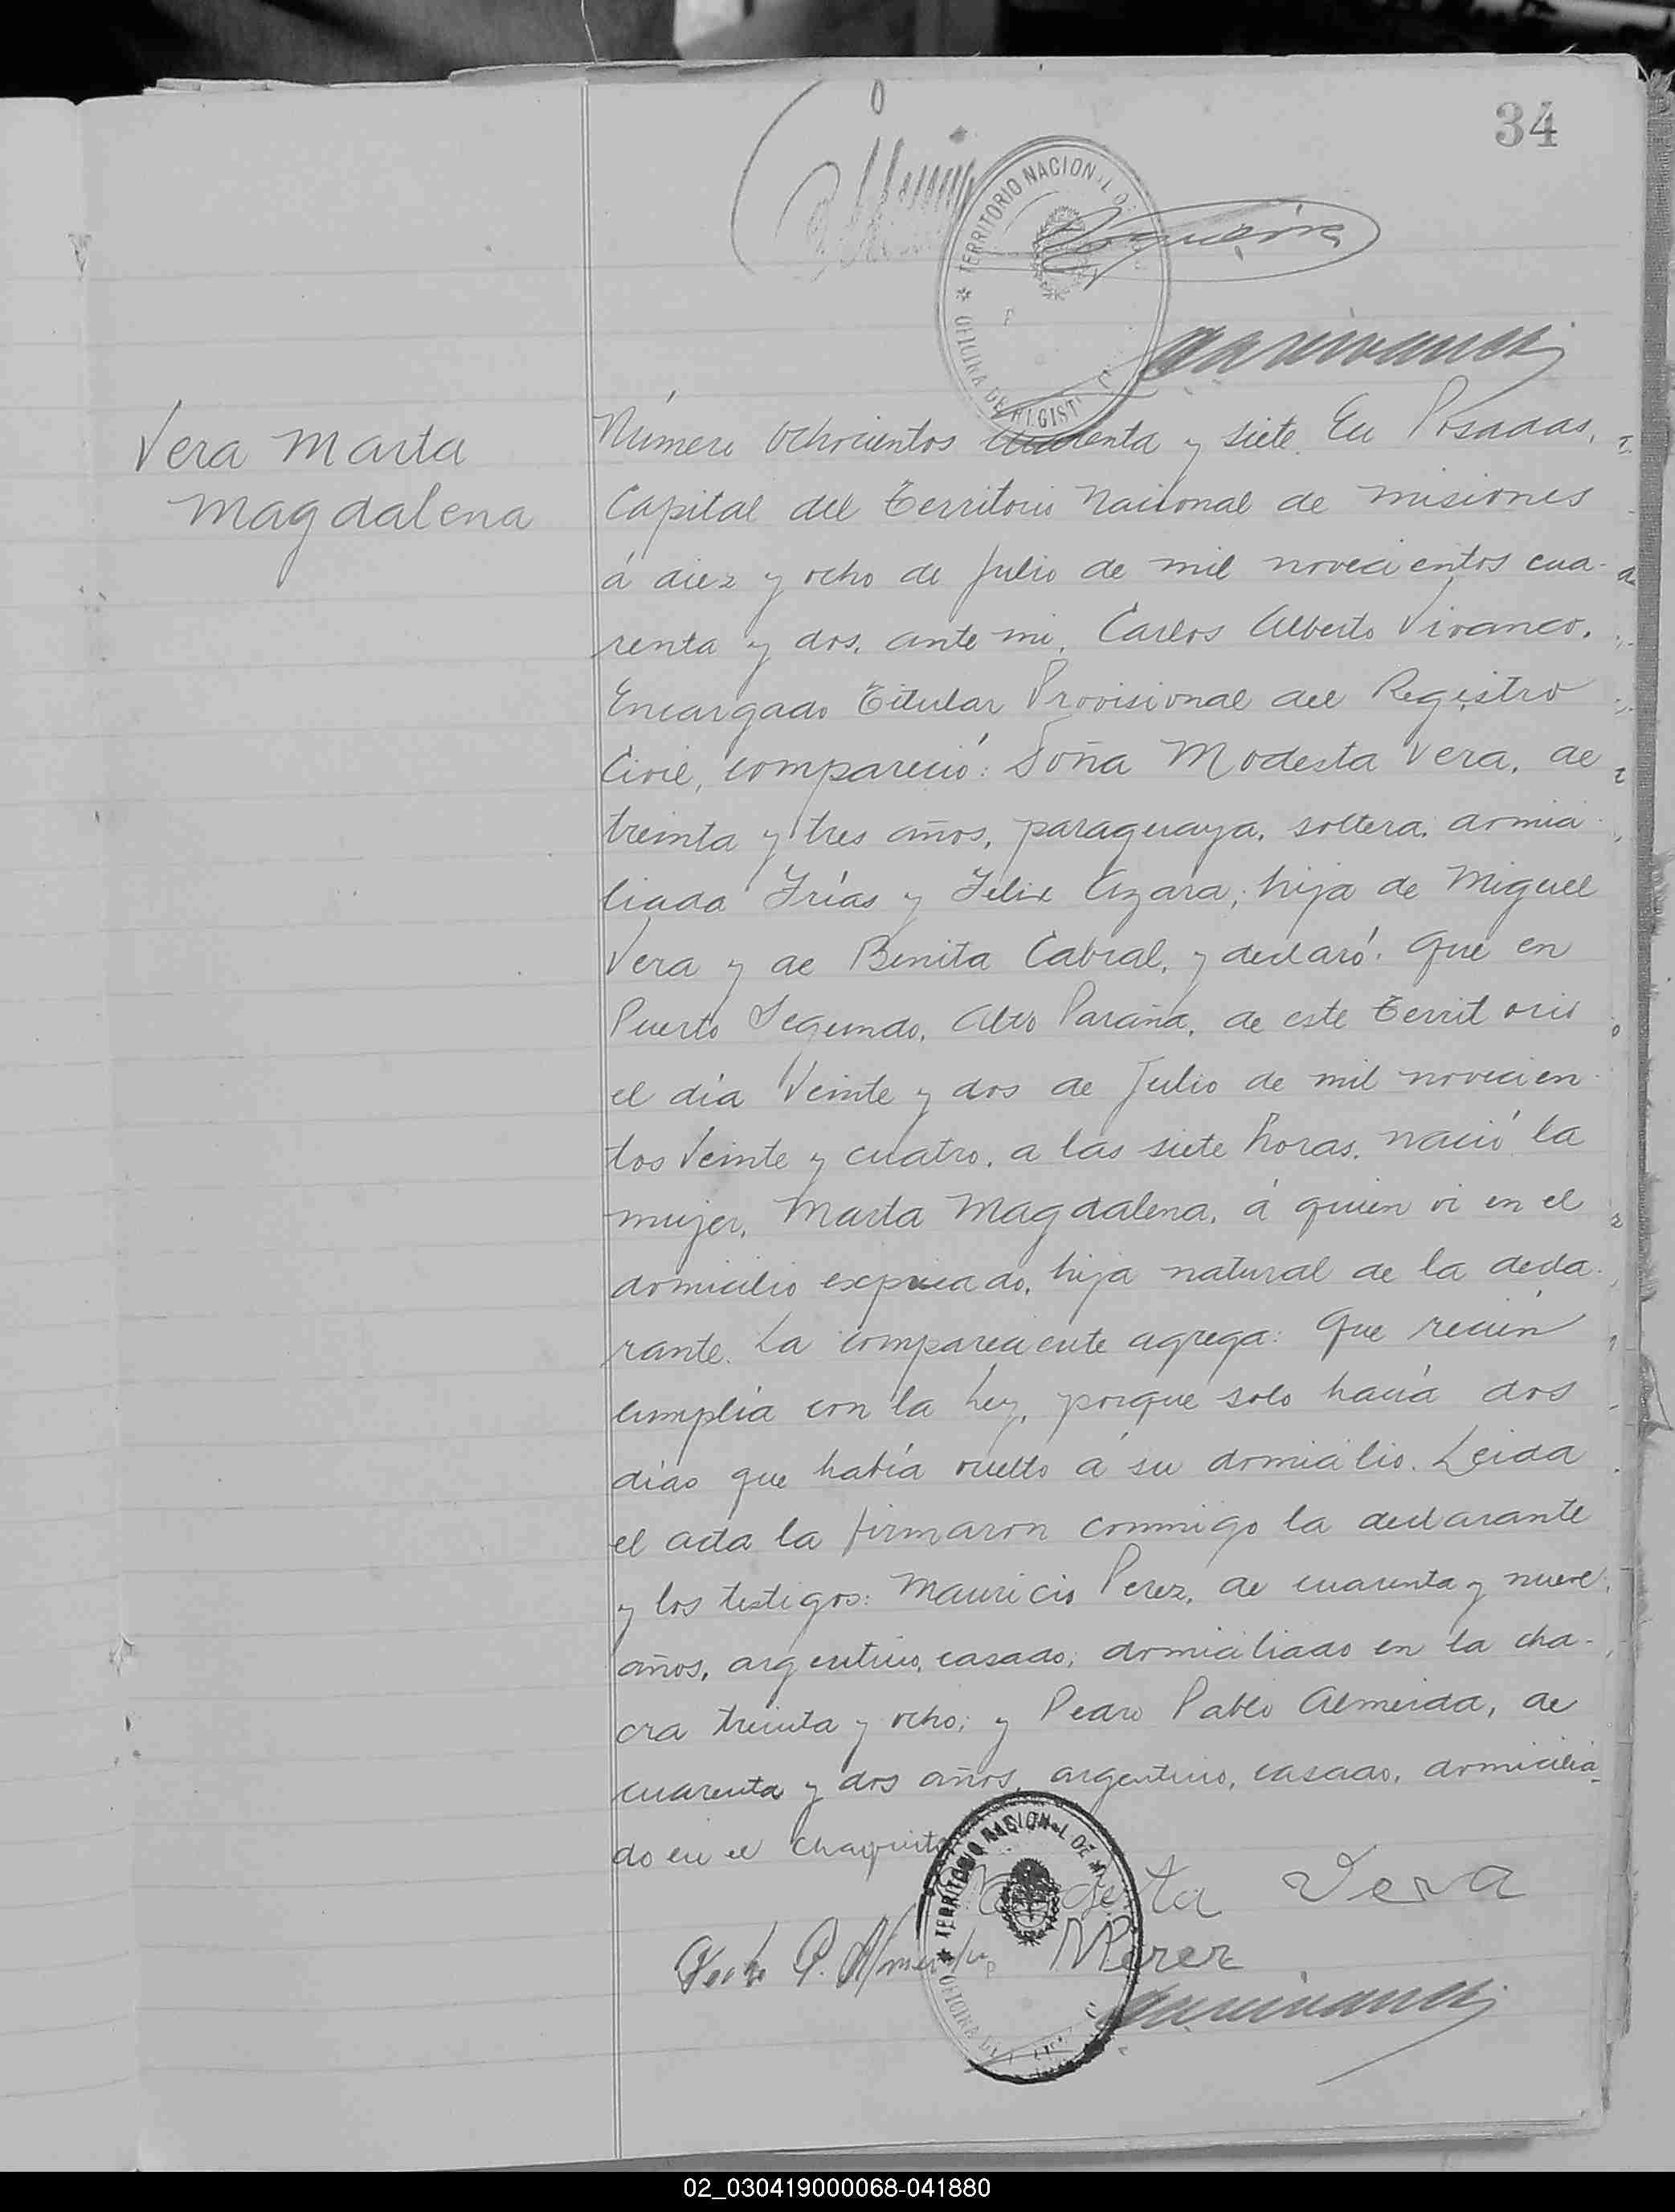 34
TERRITORIO NACIONAL D
OFICINA DE REGIST
Vera Marta
Magdalena
Número Ochocientos y siete. En Posadas,
Capital del Territorio Nacional de Misiones
á diez y ocho de Julio de mil novecientos cua-
renta y dos, ante mi, Carlos Alberto Vivanco,
Encargado Titular Provisional del Registro
Civil, compareció: Doña Modesta Vera, de
treinta y tres años, paraguaya, soltera, domici
liada Frías y Felix Azara, hija de Miguel
Vera y de Benita Cabral, y declaró: Que en
Puerto Segundo, Alto Paraña, de este Territorio
el día Veinte y dos de Julio de mil novecien
tos Veinte y cuatro, a las siete horas, nació la
mujer, Marta Magdalena, á quien vi en el
domicilio expresado, hija natural de la decla-
rante. La compareciente agrega: Que recién
cumplía con la Ley, porque solo hacía dos
días que había vuelto á su domicilio. Leida
el acta la firmaron conmigo la declarante
y los testigos: Mauricio Perez, de cuarenta y nueve
años, argentino, casado, domiciliado en la cha-
cra treinta y ocho; y Pedro Pablo Almeida, de
cuarenta y dos años, argentino, casado, domicilia-
do en el Chaquito
TERRITORIO NACIONAL DE M
OFICINA DE
Modesta Vera
Pedro P. Almeida MPerez
02_030419000068-041880